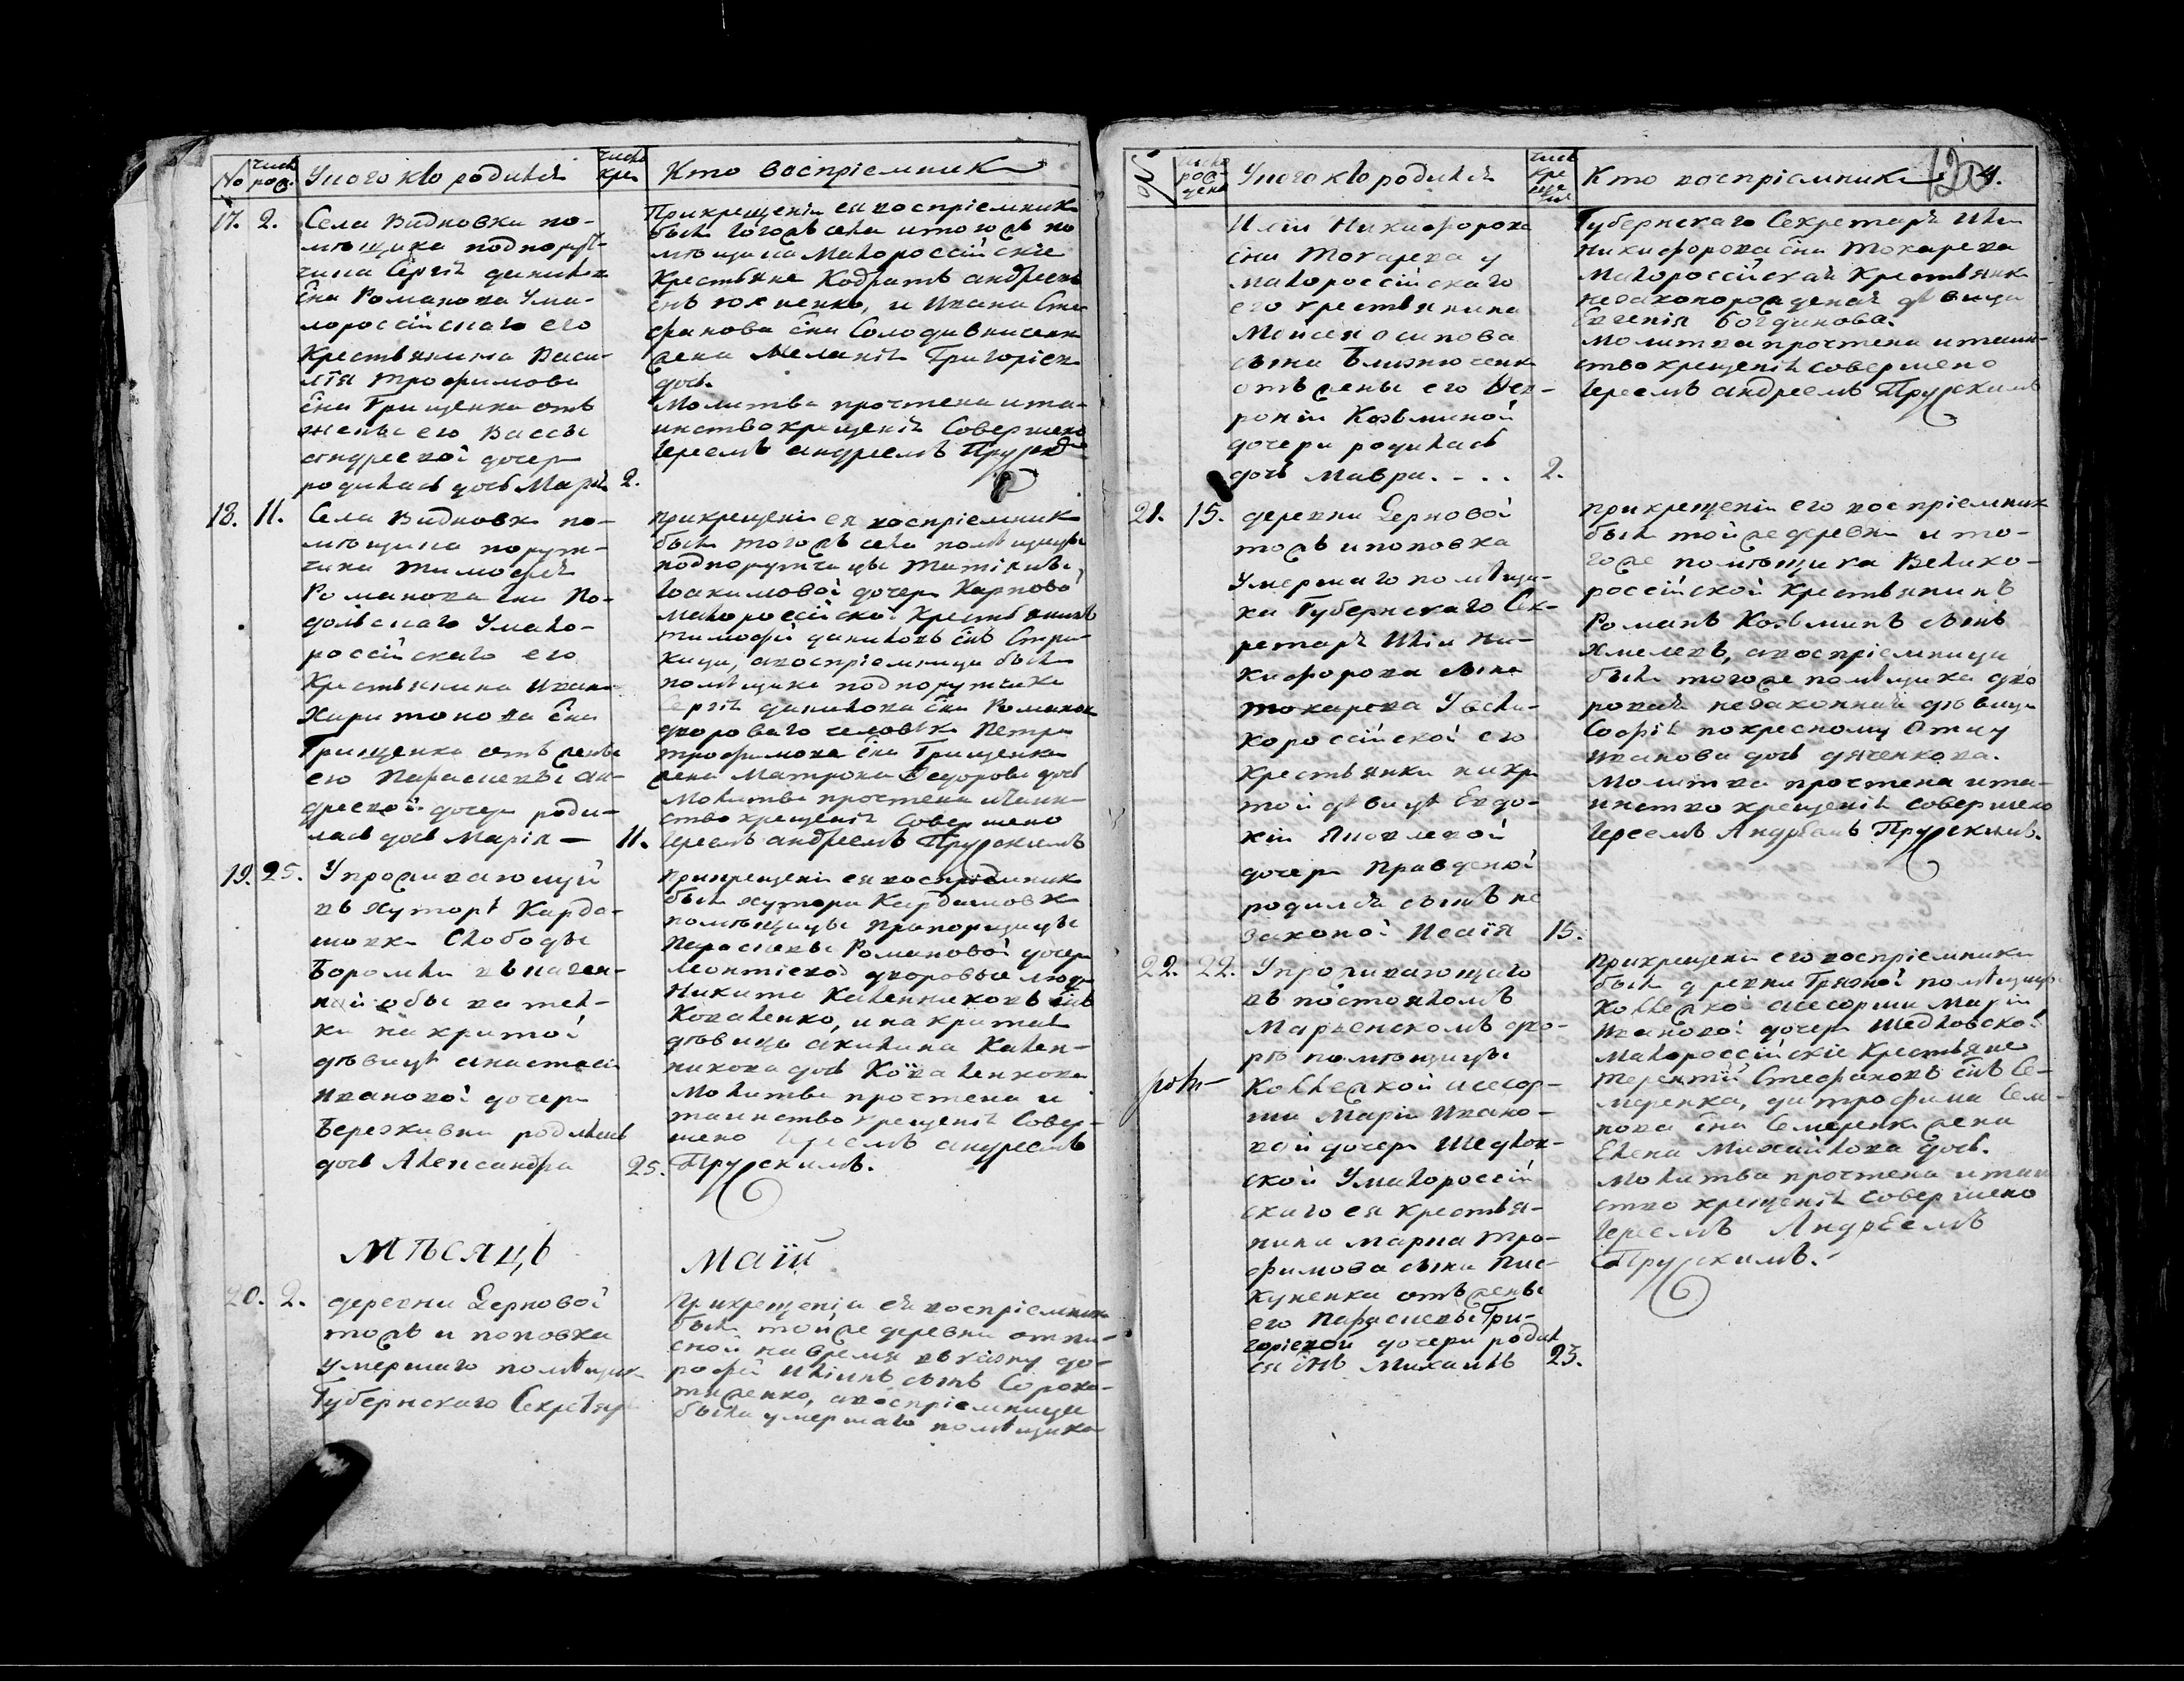 No
число рож.
У кого кто родился
число кре
Кто воспрiемники
17. 2.
Села Видновки по-
мѣщика подпорут-
чика Сергiя данилова
сна Романова У ма-
лороссiйскаго его
Крестьянина Васи-
лiя трофимова
сна Грищенка отъ
жены его Вассы
андреевой дочери
родилась дочь Марiя 2.
При крещенiи ея воспрiемники
были тогожъ села и тогожъ по
мѣщика Малороссiйскiе
Крестьяне Кодратъ андреевъ
снъ, и Ивана Сте
фанова сна
жена Меланiя Григорiева
дочь.
Молитва прочтена и та-
инство крещенiя Совершено
Iереемъ андреемъ
18. 11.
Села Видновки по-
мѣщика порут-
чика тимофея
Романова сна По-
дольскаго У мало-
россiйскаго его
Крестьянина Ивана
Харитонова сна
Грищенка отъ жены
его Параскевы ан-
дреевой дочери роди-
лась дочь Марiя — 11.
при крещенiи ея воспрiемники
были тогожъ села помѣщицы
подпорутчицы татiяны
Iоакимовой дочери Карповой
малороссiйской Крестьянинъ
тимофей даниловъ снъ Стри-
жица, а воспрiемница была
помѣщика подпорутчика
Сергiя данилова сна Романова
двороваго человѣка Петра
трофимова сна Грищенка
жена Матрона Федорова дочь
Молитва прочтена и таин-
ство крещенiя Совершено
Iереемъ андреемъ Прускимъ
19. 25.
У проживающей
въ хуторѣ Кардо-
шовки Слободы
Боромли казен-
ной обывател-
ки накритой
дѣвицѣ анастасiи
Ивановой дочери
Бережнивки родилась
дочь Александра 25.
при крещенiи ея воспрiемники
были хутора Кардашовки
помѣщицы прапорщицы
Параскевы Романовой дочери
Леонтiевой дворовые люди
Никита Калениковъ снъ
Коваленко, и накритая
дѣвица акилина Кален-
никова дочь Коваленкова
Молитва прочтена и
таинство крещенiя Совер-
шено Iереемъ андреемъ
Прускимъ.
МѢСЯЦЪ
Маiй
20. 2.
деревни Держовой
тожъ и поповка
умершаго помѣщика
Губернскаго Секретаря
При крещенiи ея воспрiемники
были той же деревни отпи-
сной на время въ казну до-
рофей Илiинъ сынъ Сороко-
тяженко, а воспрiемница
была умершаго помѣщика
No
число рож дена
У кого кто родился
число кре щенiя
Кто воспрiемники
124.
Илiи Никифорова
сна Токарева у
малороссiйскаго
его крестьянина
Мойсея осипова
сына Близнюченка
отъ жены его Фев-
ронiи Козьминой
дочери родилась
дочь Мавра. - . . 2.
Губернскаго Секретаря Илiи
никифорова сна Токарева
Малороссiйская Крестьянка
незаконорожденая дѣвица
Евгенiя Богданова.
Молитва прочтена и таин-
ство крещенiя совершено
Iереемъ андреемъ Прускимъ
21. 15.
деревни Держовой
тожъ и поповка
Умершаго помѣщи-
ка Губернскаго Сек-
ретаря Илiи Ни-
кифорова сына
токарева У вели-
короссiйской его
крестьянки накри
той дѣвицѣ Евдо-
кiи Яковлевой
дочери Правденкой
родился сынъ не
законой Исаiя 15.
при крещенiи его воспрiемники
были той же деревни и то-
го же помѣщика Велико-
россiйской Крестьянинъ
Романъ Козьминъ сынъ
Хмелевъ, а воспрiемница
была того же помѣщика дво
ровая незаконная дѣвица
Софiя по кресному Отцу
Иванова дочь дяченкова.
Молитва прочтена и та-
инство крещенiя совершено
Iереемъ Андреемъ Прускимъ.
22. 22.
У проживающаго
въ постояломъ
Марьенскомъ дво-
рѣ помѣщицы
Коллежкой асесор-
ши Марiи Ивано-
вой дочери Шедлов-
ской У малороссiй
скаго ея крестья-
нина марка тро-
фимова сына Пис-
куненка отъ жены
его Параскевы Гри-
горiевой дочери родил
ся снъ Михаилъ 23.
при крещенiи его воспрiемники
были деревни Грязной помѣщицы
Коллежкой асесорши Марiи
Ивановой дочери Шедловской
малороссiйскiе Крестьяне
терентiй Стефановъ снъ Се-
меренка, да трофима Сем-
нова сна Семеренки жена
Елена Михайлова дочь.
Молитва прочтена и таин
ство крещенiя Совершено
Iереемъ Андреемъ
Прускимъ.